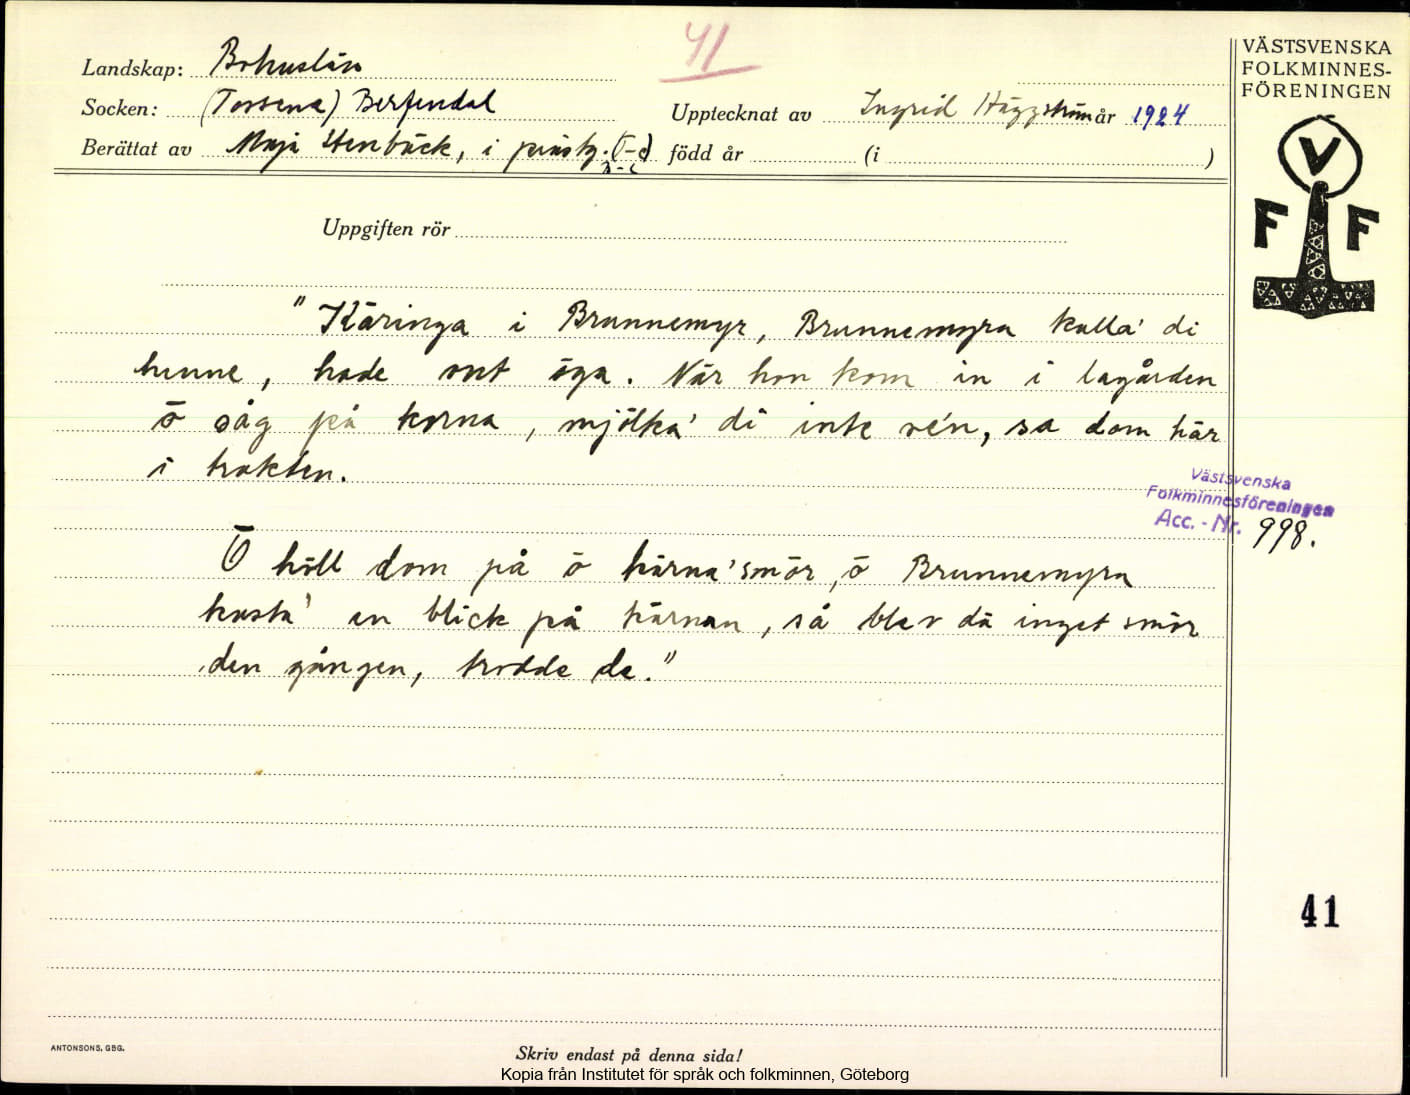 41
VÄSTSVENSKA
FOLKMINNES-
FÖRENINGEN
Landskap: Bohuslän
Socken: (Torsena) Berfendal
Upptecknat av Ingrid Häggström år 1924
Berättat av Maja Stenbäck, i
född år (i )
V
F F
Uppgiften rör
"Käringa i Brunnemyr, Brunnemyra kalla' di
henne, hade ont öga. När hon kom in i lagården
ō såg på korna, mjölka' di inte re'n, sa dom här
i trakten.
Västsvenska
Folkminnesföreningen
Acc. - Nr. 998.
Ō höll dom på ō kärna' smör, ō Brunnemyra
kasta' en blick på kärnan, så blev dä inget smör
den gången, trodde de."
41
ANTONSONS, GBG.
Skriv endast på denna sida!
Kopia från Institutet för språk och folkminnen, Göteborg